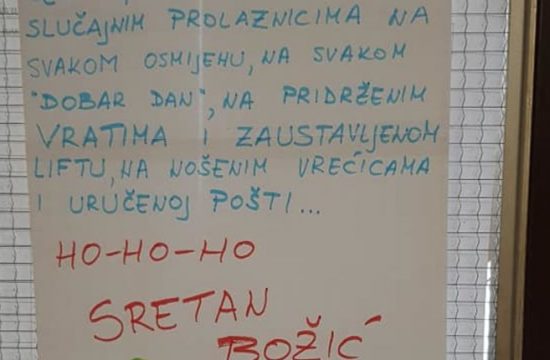 SLUČAJNIM PROLAZNICIMA NA
SVAKOM OSMIJEHU, NA SVAKOM
"DOBAR DAN", NA PRIDRŽENIM
VRATIMA I ZAUSTAVLJENOM
LIFTU, NA NOŠENIM VREĆICAMA
I URUČENOJ POŠTI...
HO-HO-HO
SRETAN
BOŽIĆ